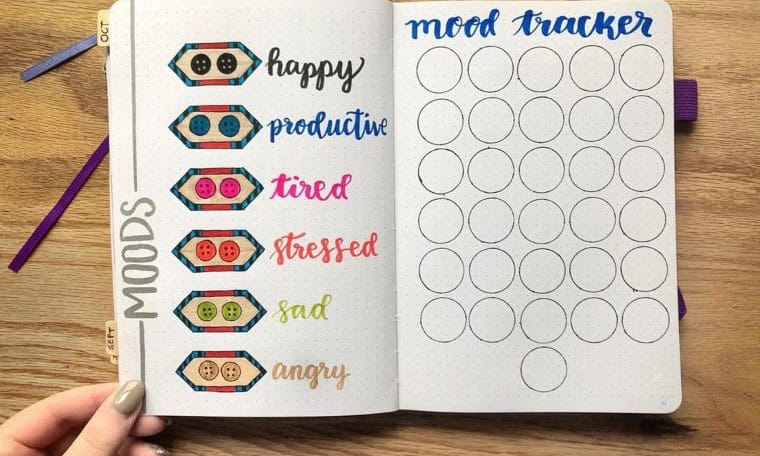 OCT
SEPT
MOODS
happy
productive
tired
stressed
sad
angry
mood tracker